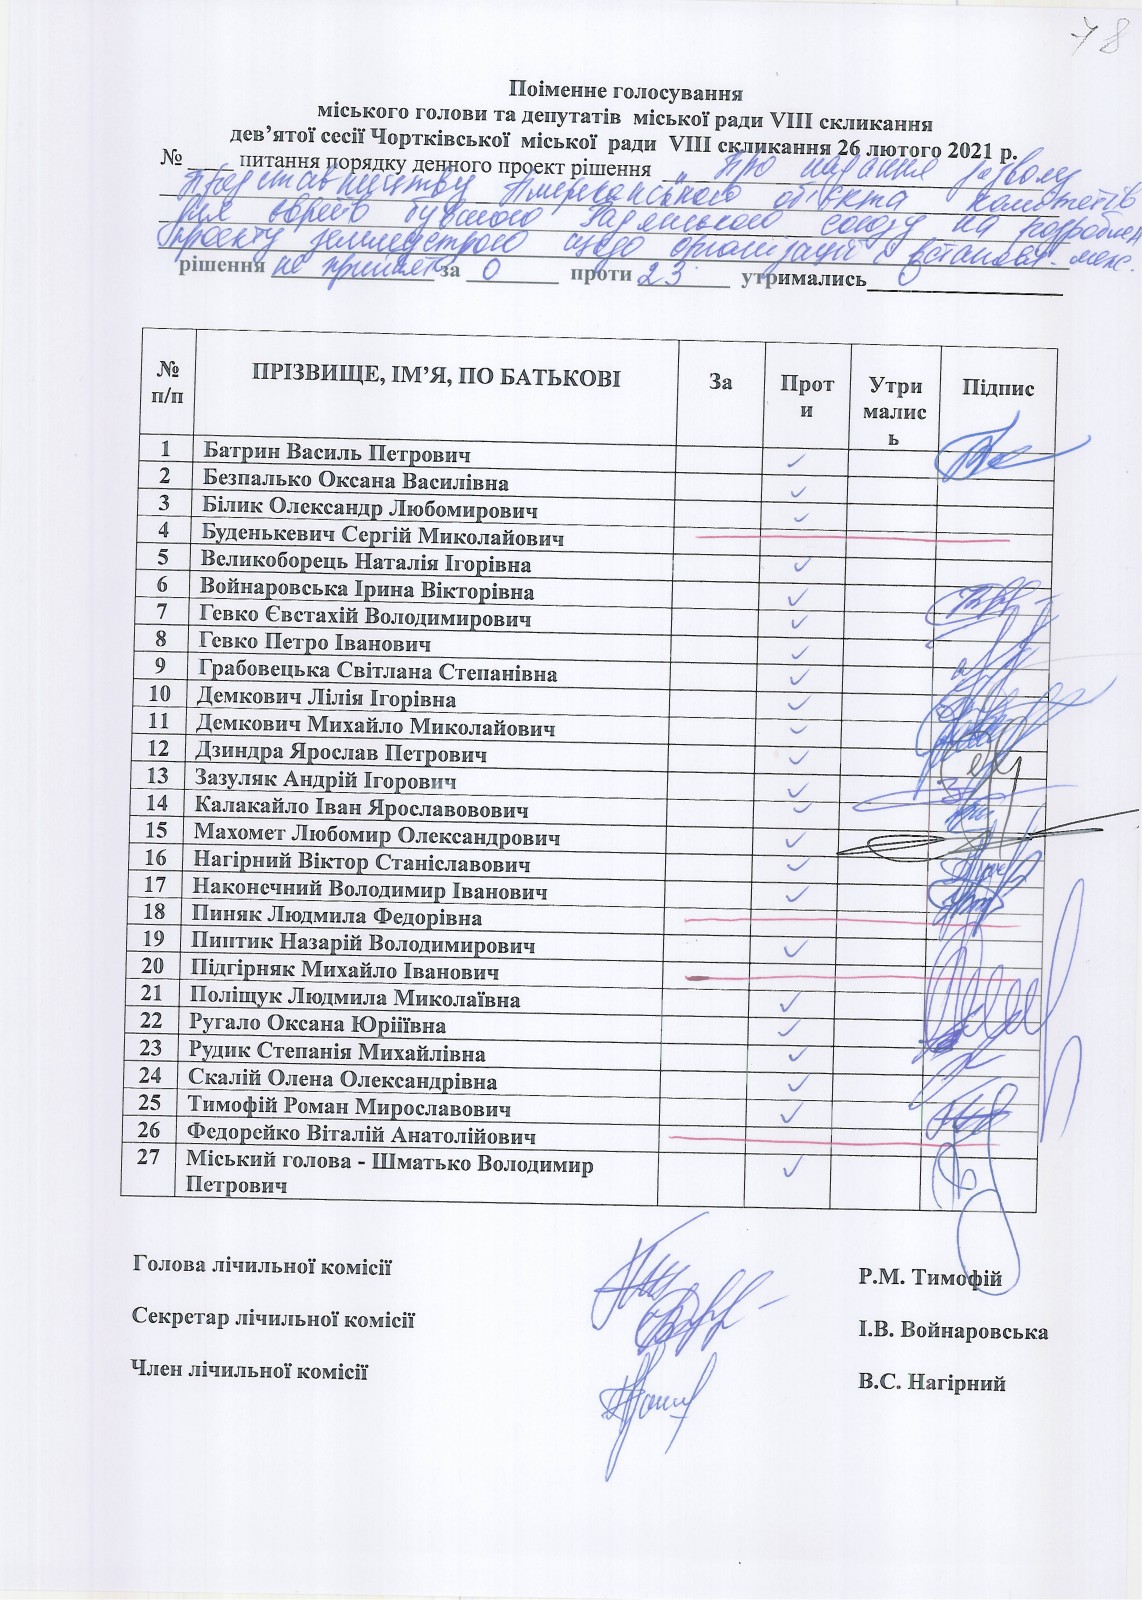 78
Поіменне голосування
міського голови та депутатів міської ради VIII скликання
дев’ятої сесії Чортківської міської ради VIII скликання 26 лютого 2021 р.
№ ____ питання порядку денного проект рішення „Про надання дозволу
Представництву Американського об'єкта комітетів
для євреїв бувшого Радянського союзу на розроблен
проекту землеустрою щодо організації і встановл. меж.
рішення не прийнято за 0 проти 23 утримались 0
№ п/п ПРІЗВИЩЕ, ІМ’Я, ПО БАТЬКОВІ За Проти Утримались Підпис
1 Батрин Василь Петрович ✓
2 Безпалько Оксана Василівна ✓
3 Білик Олександр Любомирович ✓
4 Буденькевич Сергій Миколайович
5 Великоборець Наталія Ігорівна ✓
6 Войнаровська Ірина Вікторівна ✓
7 Гевко Євстахій Володимирович ✓
8 Гевко Петро Іванович ✓
9 Грабовецька Світлана Степанівна ✓
10 Демкович Лілія Ігорівна ✓
11 Демкович Михайло Миколайович ✓
12 Дзиндра Ярослав Петрович ✓
13 Зазуляк Андрій Ігорович ✓
14 Калакайло Іван Ярославовович ✓
15 Махомет Любомир Олександрович ✓
16 Нагірний Віктор Станіславович ✓
17 Наконечний Володимир Іванович ✓
18 Пиняк Людмила Федорівна
19 Пиптик Назарій Володимирович ✓
20 Підгірняк Михайло Іванович
21 Поліщук Людмила Миколаївна ✓
22 Ругало Оксана Юріїівна ✓
23 Рудик Степанія Михайлівна ✓
24 Скалій Олена Олександрівна ✓
25 Тимофій Роман Мирославович ✓
26 Федорейко Віталій Анатолійович
27 Міський голова - Шматько Володимир Петрович ✓
Голова лічильної комісії Р.М. Тимофій
Секретар лічильної комісії І.В. Войнаровська
Член лічильної комісії В.С. Нагірний